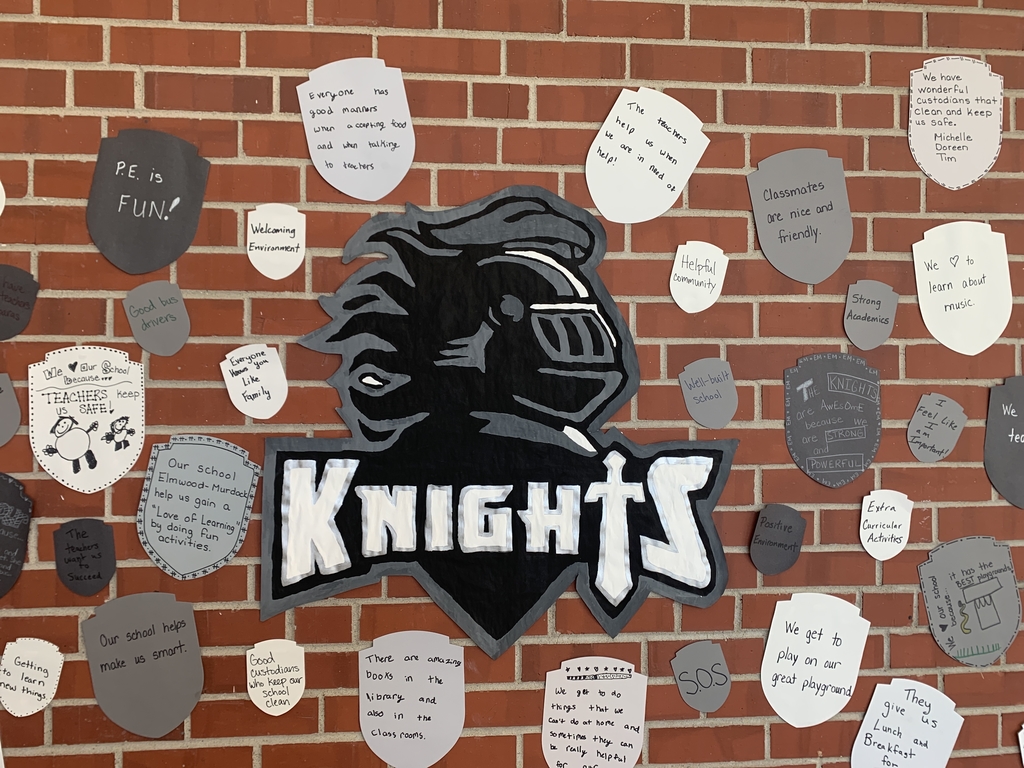 Everyone has
good manners
when accepting food
and when talking
to teachers
The teachers
help us when
we are in need of
help!
We have
wonderful
custodians that
clean and keep
us safe.
Michelle
Doreen
Tim
P.E. is
FUN!
Classmates
are nice and
friendly.
Welcoming
Environment
Helpful
community
We ♡ to
learn about
music.
Good bus
drivers
Strong
Academics
We ♥ Our School
Because...
TEACHERS keep
us SAFE!
Everyone
Hears you
Like
Family
Well-built
school
THE KNIGHTS
are AWESOME
because we
are STRONG
and
POWERFUL
I
Feel Like
I am
Important!
We
tea
Our school
Elmwood-Murdock
help us gain a
"Love of Learning"
by doing fun
activities.
KNIGHTS
The
teachers
want us to
Succeed
Positive
Environment
Extra
Curricular
Activities
We ♥ our school
because... it has the
BEST playground!
Our school helps
make us smart.
Getting
to learn
new things
Good
custodians
who keep our
school
clean
There are amazing
books in the
library and
also in the
classrooms.
We get to do
things that we
can't do at home and
sometimes they can
be really helpful
for our
SOS
We get to
play on our
great playground
They
give us
Lunch and
Breakfast
for